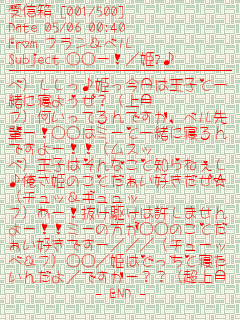 受信箱 [001/500]
Date 05/06 00:40
From フラン&ベル
Subject ○○ー！／姫?♪
ベ）ししっ♪姫っ今日は王子と一
緒に寝ようぜ？（上目
フ）何いってるんですか、ベル先
輩ー！○○はミーと一緒に寝るん
ですよー！！（ムスッ
ベ）王子はそんなこと知らねぇし
♪俺さ姫のことだぁい好きだぜ☆
（チュッ＆ギュッ
フ）わー！抜け駆けは許しません
よー！！ミーの方が○○のことだ
ぁい好きですー／／／（チュッ
ベ&フ）○○／姫はどっちと寝た
いんだよ／ですかー？？（超上目
- END -